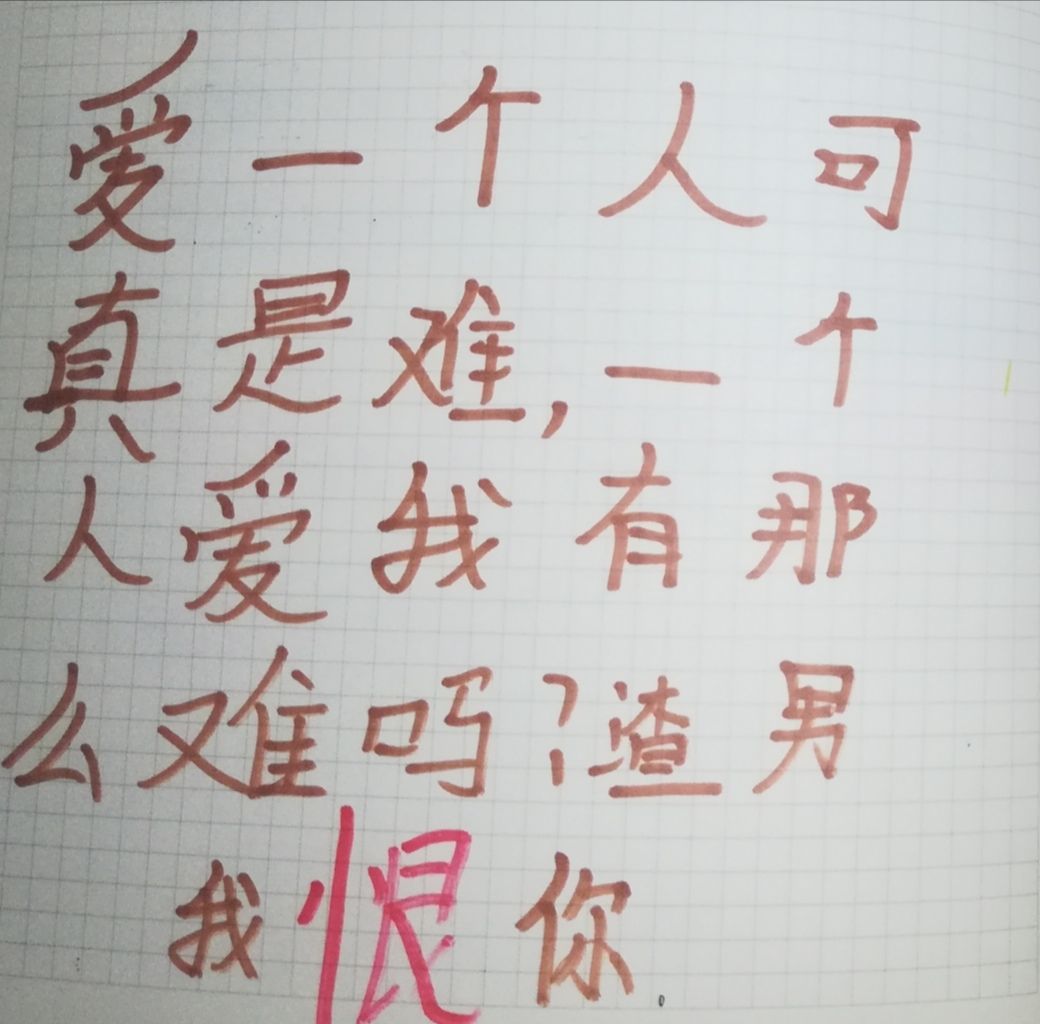 爱一个人可
真是难,一个
人爱我有那
么难吗?渣男
我恨你.